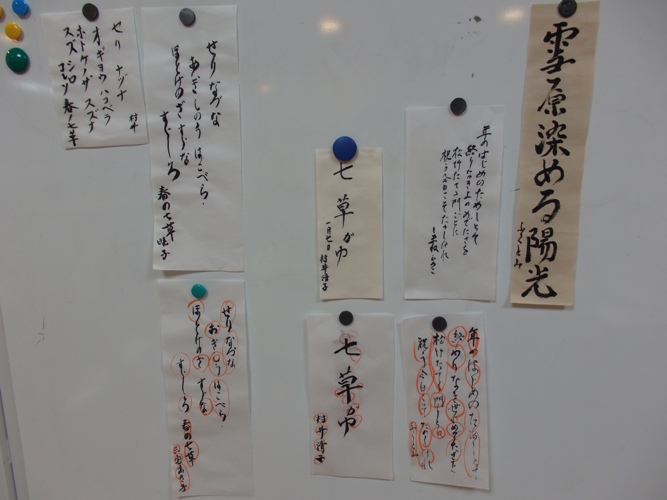 雪原染める陽光
年のはじめのためしとて
終りなき世のめでたさを
松竹たてて門ごとに
祝う今日こそたのしけれ
七草がゆ
一月七日
せりなずな
おぎょう はこべら
ほとけのざ すずな
すずしろ 春の七草
セリ ナヅナ
オギョウ ハコベラ
ホトケノザ スズナ
スズシロ
春ノ七草
年のはじめのためしとて
終りなき世のめでたさを
松竹たてて門ごとに
祝う今日こそたのしけれ
七草がゆ
せりなずな
おぎょう はこべら
ほとけのざ すずな
すずしろ 春の七草